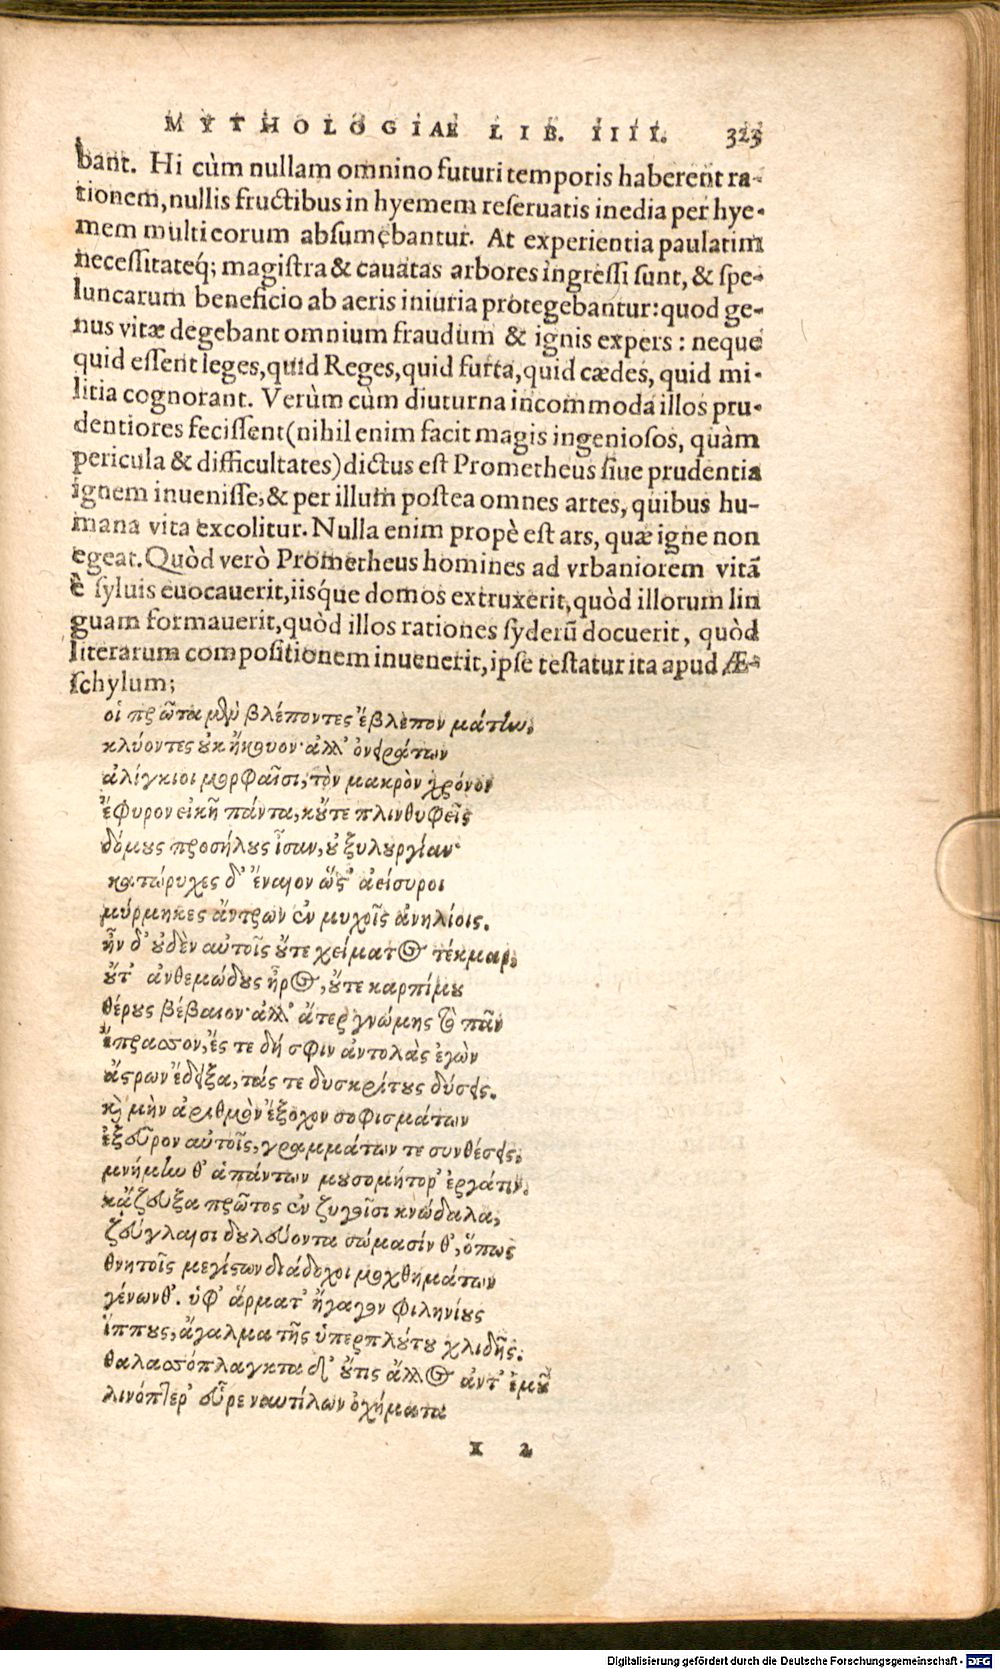 MYTHOLOGIAE LIB. IIII. 323
bant. Hi cùm nullam omnino futuri temporis haberent ra-
tionem, nullis fructibus in hyemem reſeruatis inedia per hye-
mem multi eorum abſumebantur. At experientia paulatim
neceſſitateq́; magiſtra & cauatas arbores ingreſſi ſunt, & ſpe-
luncarum beneficio ab aeris iniuria protegebantur: quod ge-
nus vitæ degebant omnium fraudum & ignis expers: neque
quid eſſent leges, quid Reges, quid furta, quid cædes, quid mi-
litia cognorant. Verùm cùm diuturna incommoda illos pru-
dentiores feciſſent (nihil enim facit magis ingenioſos, quàm
pericula & difficultates) dictus eſt Prometheus ſiue prudentia
ignem inueniſſe, & per illum poſtea omnes artes, quibus hu-
mana vita excolitur. Nulla enim propè eſt ars, quæ igne non
egeat. Quòd verò Prometheus homines ad vrbaniorem vitā
è ſyluis euocauerit, iiſque domos extruxerit, quòd illorum lin
guam formauerit, quòd illos rationes ſyderū docuerit, quòd
literarum compoſitionem inuenerit, ipſe teſtatur ita apud Æ-
ſchylum;
οἱ πρῶτα μὲν βλέποντες ἔβλεπον μάτην.
κλύοντες ȣκ ἤκουον· ἀλλ' ὀνειράτων
ἀλίγκιοι μορφαῖσι, τὸν μακρὸν χρόνον
ἔφυρον εἰκῆ πάντα, κȣ̓́τε πλινθυφεῖς
δόμȣς προσήλȣς ἦσαν, ȣ̓ ξυλȣργίαν·
κατώρυχες δ' ἔναιον ὥς' ἀείσυροι
μύρμηκες ἄντρων ἐν μυχοῖς ἀνηλίοις.
ἦν δ' ȣ̓δὲν αὐτοῖς ȣ̓́τε χείματος τέκμαρ,
ȣ̓́τ' ἀνθεμώδȣς ἦρος, ȣ̓́τε καρπίμȣ
θέρȣς βέβαιον· ἀλλ' ἄτερ γνώμης τὸ πᾶν
ἔπρασσον, ἔς τε δή σφιν ἀντολὰς ἐγὼν
ἄςρων ἔδειξα, τάς τε δυσκρίτȣς δύσεις.
καὶ μὴν ἀριθμὸν ἔξοχον σοφισμάτων
ἐξεῦρον αὐτοῖς, γραμμάτων τε συνθέσεις,
μνήμην θ' ἁπάντων μυσομήτορ' ἐργάτιν.
κᾄζευξα πρῶτος ἐν ζυγοῖσι κνώδαλα,
ζεύγλαισι δȣλεύοντα σώμασίν θ', ὅπως
θνητοῖς μεγίςων διάδοχοι μοχθημάτων
γένωνθ'. ὑφ' ἅρματ' ἤγαγον φιληνίȣς
ἵππȣς, ἄγαλμα τῆς ὑπερπλȣ́τȣ χλιδῆς.
θαλασσόπλαγκτα δ' ȣ̓́τις ἄλλος ἀντ' ἐμȣ͂
λινόπτερ' εὗρε ναυτίλων ὀχήματα
X 2
Digitalisierung gefördert durch die Deutsche Forschungsgemeinschaft - DFG